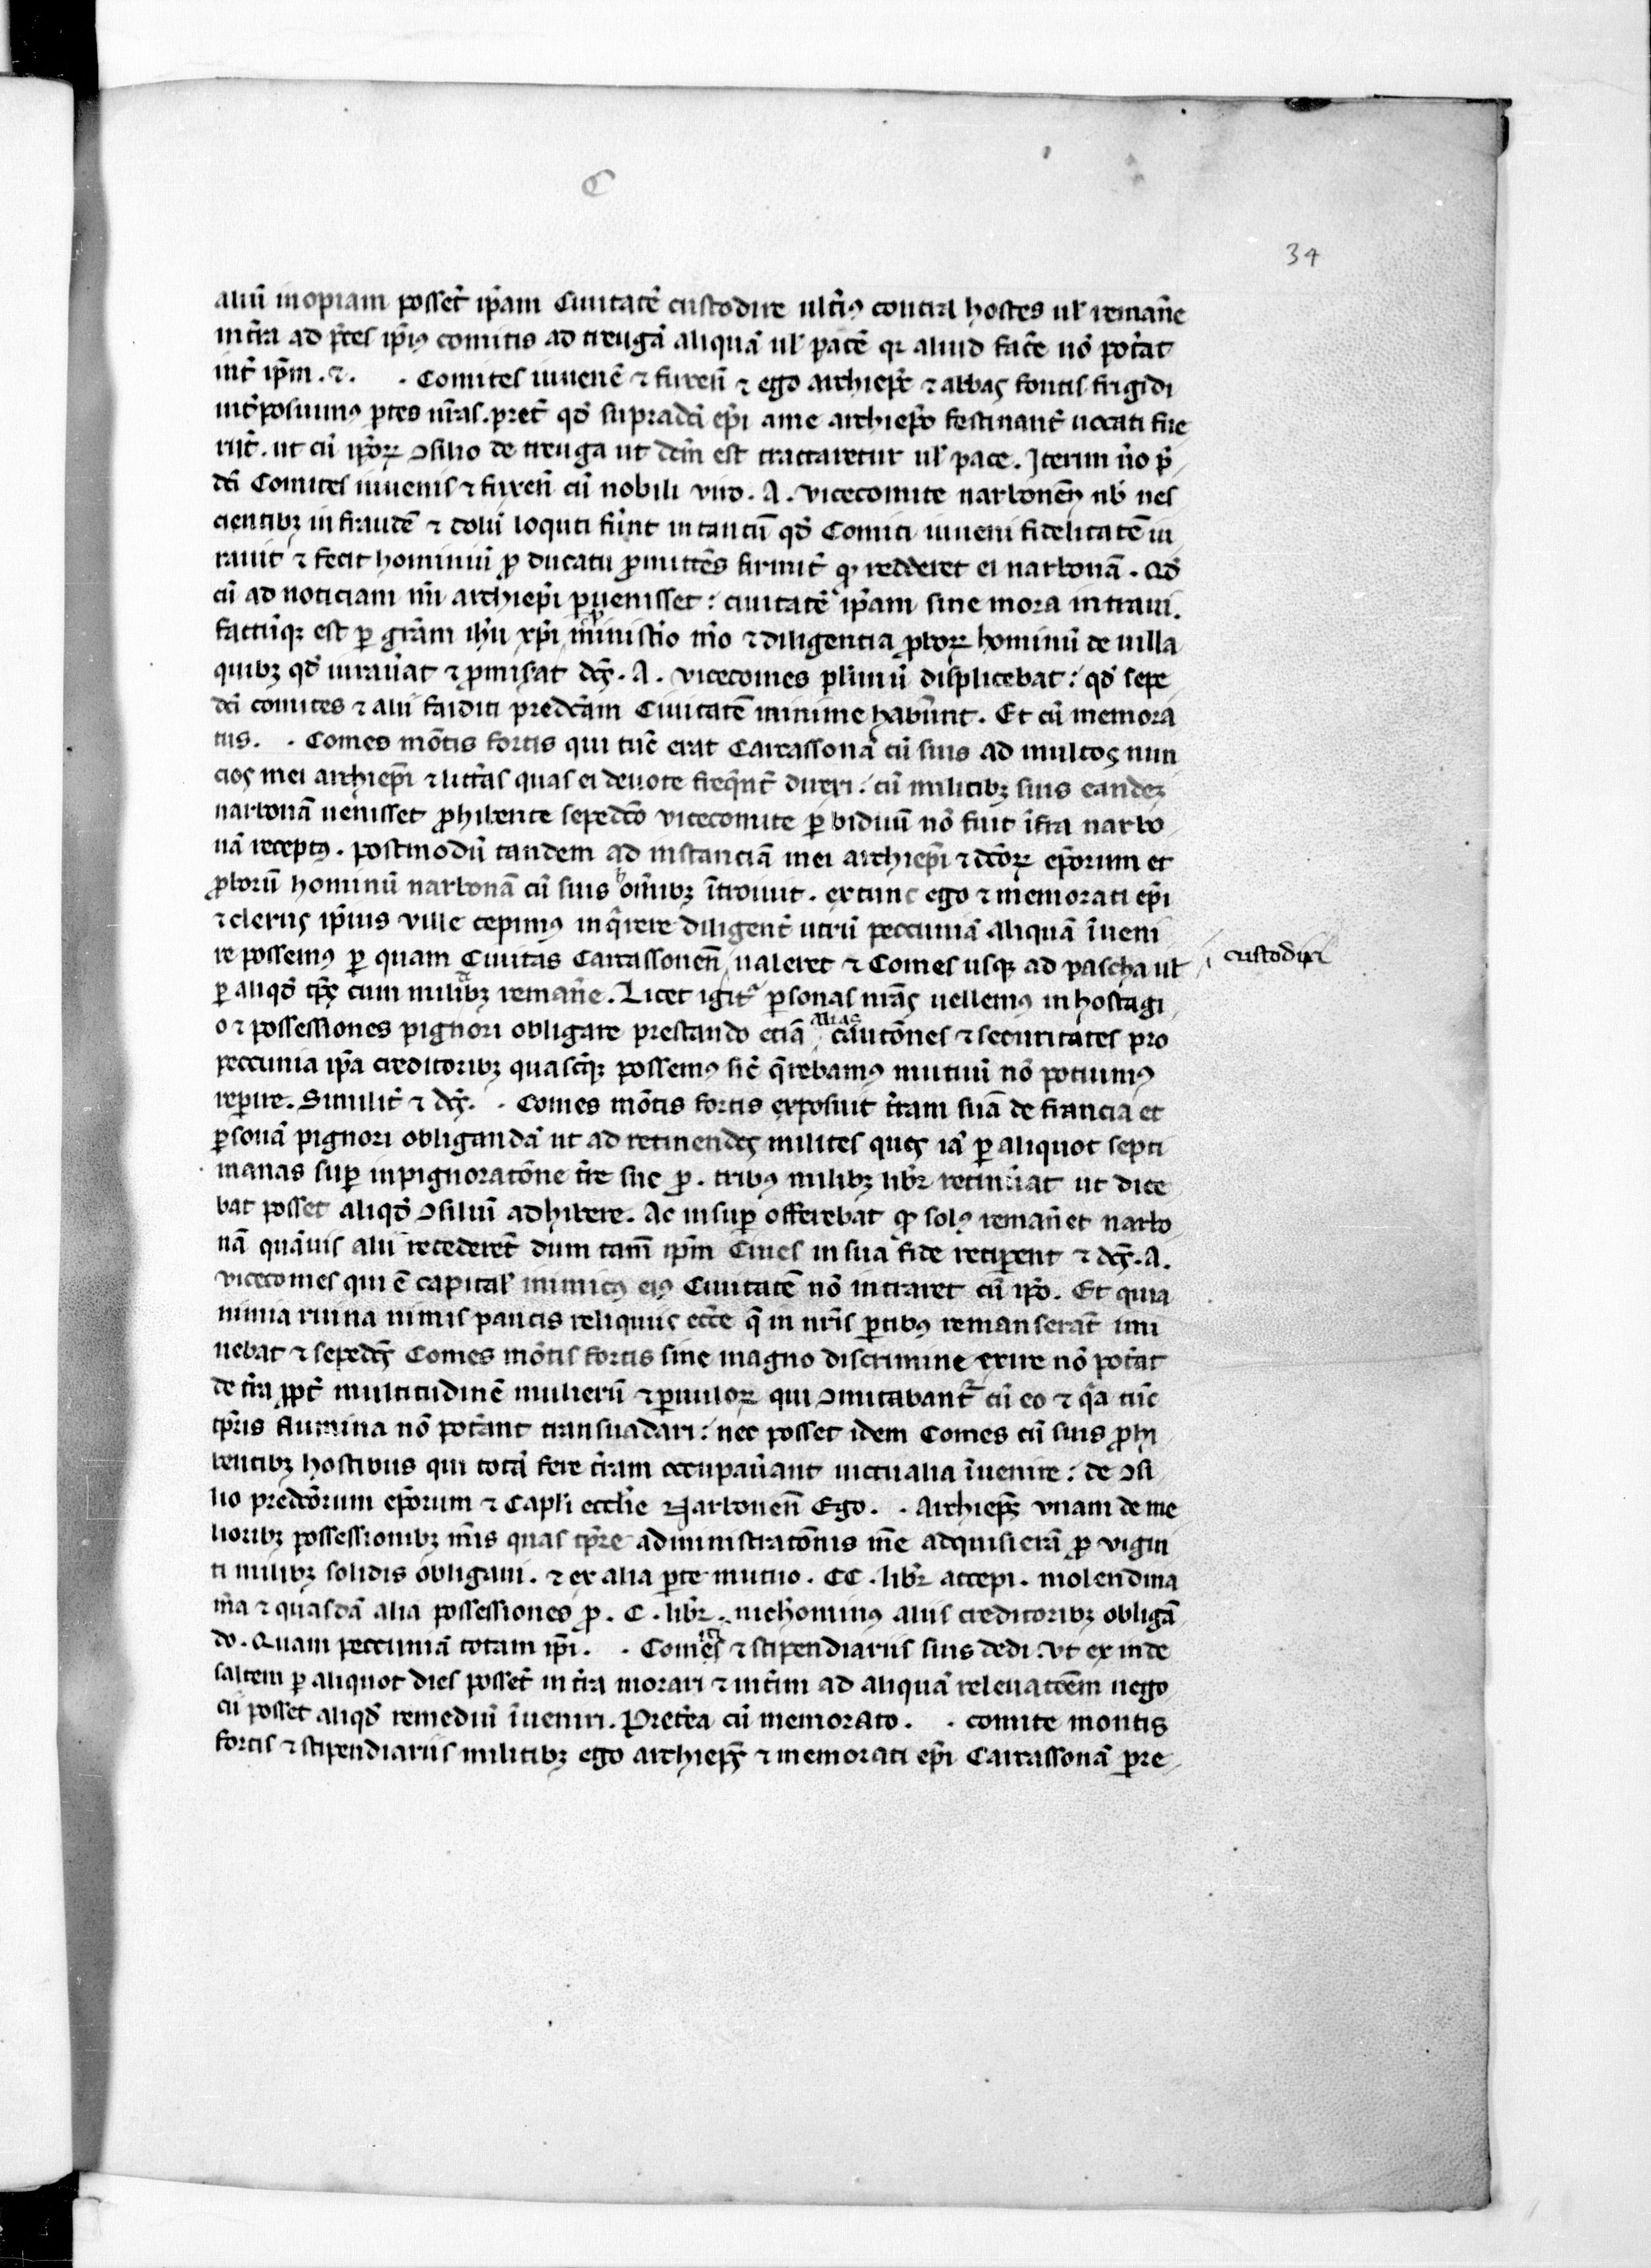 C
34
aliū inopiam posset̄ ip̄am Ciuitatē custodire ult̄iꝰ contra hostes ul̓ remañe
in t̄ra ad p̄ces ip̄iꝰ comitis ad treugā aliquā ul̓ pacē qr aliud fac̄e nō pot̄at
int̄ ip̄m . ⁊ . . Comites iuuenē ⁊ fuxeñ ⁊ ego archiep̄c ⁊ abbas fontis frigidi
int̄posuimꝰ p̄tes nr̄as . pret̄ qd̄ supradc̄i ep̄i a me archiep̄o festinant̄ uocati fue
rūt . ut cū ip̄oꝝ ꝯsilio de treuga ut dc̄m est tractaretur ul̓ pace . Iterim u̓o p̄
dc̄i Comites iuuenis ⁊ fuxeñ cū nobili uiro . A . vicecomite narboneñ nob̄ nes
cientibꝫ in fraudē ⁊ dolū loquti fūnt in tantū qd̄ Comiti iuueni fidelitatē iu
rauit ⁊ fecit hominiū ꝓ ducatu ꝓmittēs firmit̄ ꝙ redderet ei narbonā . Qd̄
cū ad noticiam mei archiep̄i ꝑuenisset : ciuitatē ip̄am sine mora intraui .
factūqꝫ est ꝑ gr̄am ih̄u xp̄i ministio mō ⁊ diligentia ꝓboꝝ hominū de uilla
quibꝫ qd̄ iurau̓at ⁊ ꝓmis̓at dc̄s . A . vicecomes plimū displicebat : qd̄ sepe
dc̄i comites ⁊ alii faiditi predc̄am Ciuitatē minime habu̓nt . Et cū memora
tus . . Comes mōtis fortis qui tūc erat Carcassonā cū suis ad multos nun
cios mei archiep̄i ⁊ litt̄as quas ei deuote freq̄nt̄ direxi : cū militibꝫ suis eandeꝫ
narbonā uenisset ꝓhibente sepedc̄o vicecomite ꝑ biduū nō fuit īfra narbo
nā receptꝰ . postmodū tandem ad instanciā mei archiep̄i ⁊ dc̄oꝝ ep̄orum et
ꝓborū hominū narbonā cū suis om̄ibꝫ ītroiuit . ex tunc ego ⁊ memorati ep̄i
⁊ clerus ip̄ius ville cepimꝰ inq̄rere diligent̄ utrū peccuniā aliquā īueni
re possemꝰ ꝑ quam Ciuitas Carcassoneñ ualeret ⁊ Comes usqꝫ ad pascha ul̓ custodiri
ꝑ aliqd̄ tp̄s cum militibꝫ remañe . Licet igit̓ ꝑsonas nr̄as uellemꝰ in hostagi
o ⁊ possessiones pignori obligare prestando eciā alias cautōnes ⁊ securitates pro
peccunia ip̄a creditoribꝫ quascūqꝫ possemꝰ sic̄ q̄rebamꝰ mutuū nō potuimꝰ
reꝑire . Similit̄ ⁊ dc̄s . . Comes mōtis fortis exposuit t̄ram suā de francia et
ꝑsonā pignori obligandā ut ad retinendos milites quos iā ꝑ aliquot septi
manas suꝑ inpignoratōne t̄re sue ꝓ . tribꝰ milibꝫ libr̄ retinu̓at ut dice
bat posset aliqd̄ ꝯsiliū adhibere . Ac insuꝑ offerebat ꝙ solꝰ remañet narbo
nā quāuis alii recederēt dum tam̄ ip̄m Ciues in sua fide reciꝑent ⁊ dc̄s . A .
vicecomes qui ē capital̓ inimicꝰ eiꝰ Ciuitatē nō intraret cū ip̄o . Et quia
nimia ruina nimis paucis reliquiis ecc̄e q̄ in nr̄is ꝑtibꝰ remanserāt imi
nebat ⁊ sepedc̄s Comes mōtis fortis sine magno discrimine exire nō pot̄at
de t̄ra ꝓpt̄ multitudinē mulierū ⁊ ꝑuuloꝝ qui ꝯmitabant̓ cū eo ⁊ q̄a tūc
tp̄ris flumina nō pot̄ant transuadari : nec posset idem Comes cū suis ꝓhi
bentibꝫ hostibus qui totā fere t̄ram occupau̓ant uictualia īuenire : de ꝯsi
lio predc̄orum ep̄orum ⁊ Capl̓i eccl̓ie Narboneñ Ego . . Archiep̄s vnam de me
lioribꝫ possessionibꝫ meis quas tp̄re administratōnis mee adquisierā ꝓ vigin
ti milibꝫ solidis obligaui . ⁊ ex alia ꝑte mutuo . CC . libr̄ accepi . molendina
m̄a ⁊ quasdā alia possessiones ꝓ . C . libr̄ . nichominꝰ aliis creditoribꝫ obligā
do . Quam peccuniā totam ip̄i . . Comes iti ⁊ stipendiariis suis dedi . Vt ex inde
saltem ꝑ aliquot dies posset̄ in t̄ra morari ⁊ int̄im ad aliquā releuatōem nego
cii posset aliqd̄ remediū īueniri . Pret̄ea cū memorato . . comite montis
fortis ⁊ stipendiariis militibꝫ ego archiep̄s ⁊ memorati ep̄i Carcassonā pre